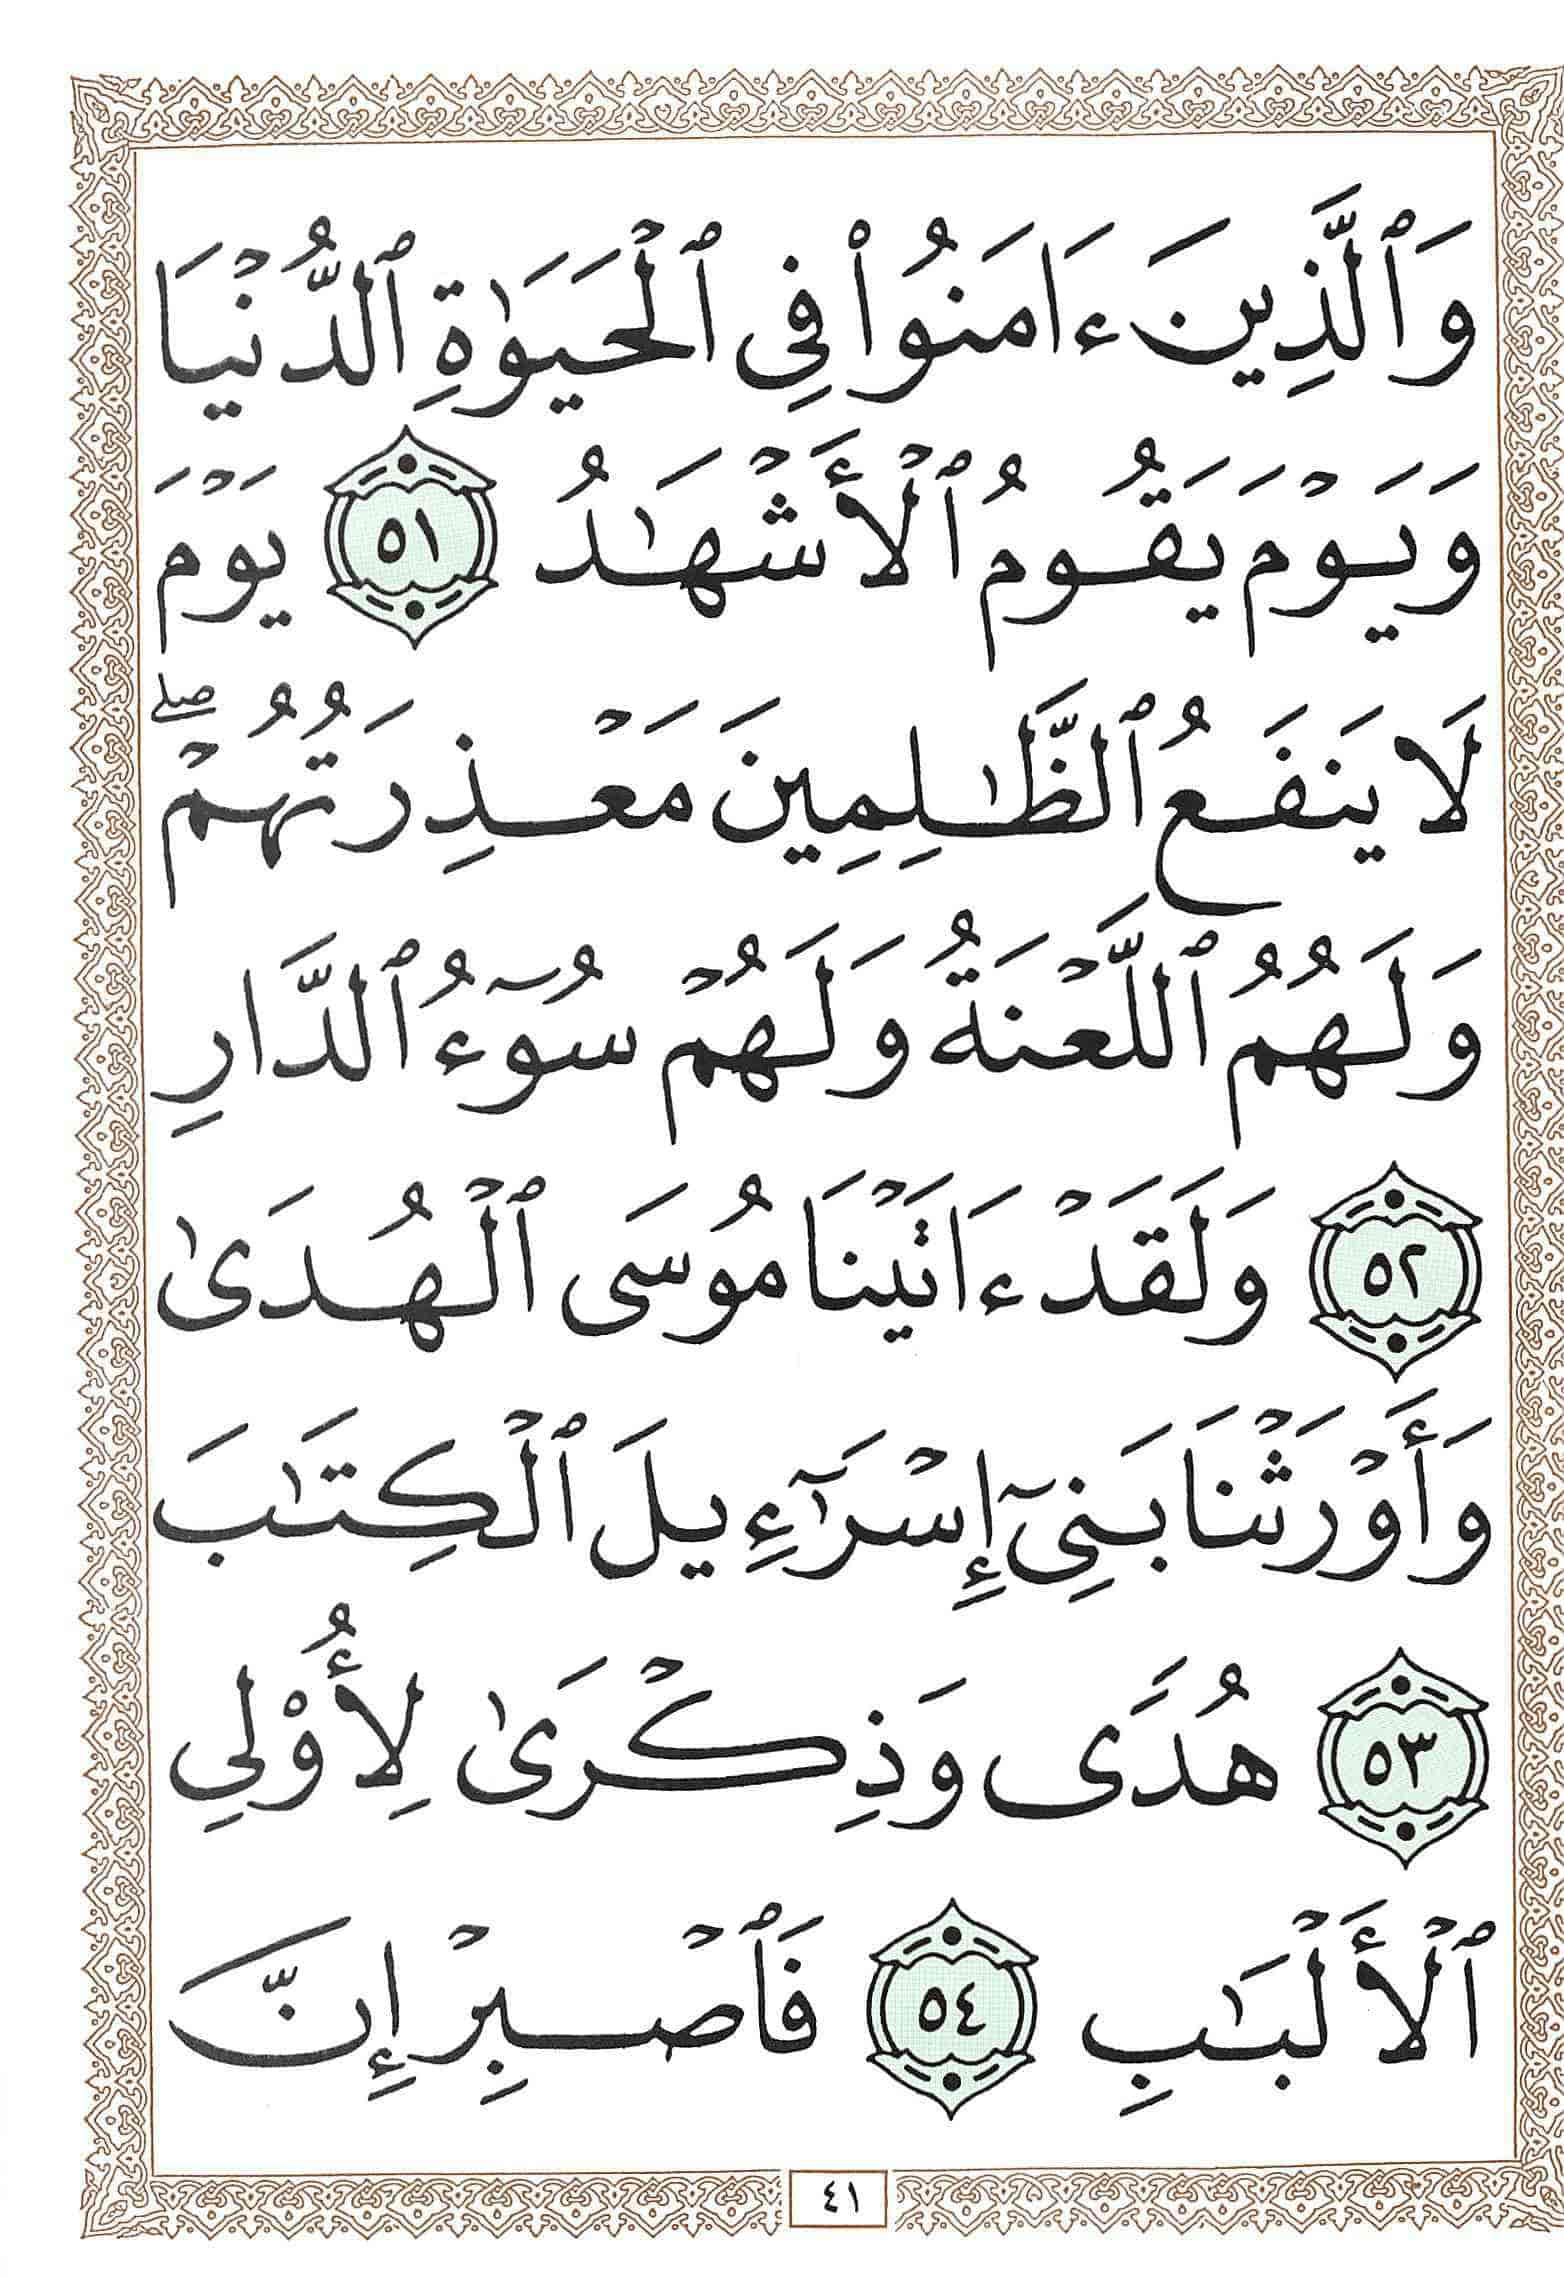 وَٱلَّذِينَ ءَامَنُوا۟ فِى ٱلْحَيَوٰةِ ٱلدُّنْيَا
وَيَوْمَ يَقُومُ ٱلْأَشْهَـٰدُ ٥١ يَوْمَ
لَا يَنفَعُ ٱلظَّـٰلِمِينَ مَعْذِرَتُهُمْ ۖ
وَلَهُمُ ٱللَّعْنَةُ وَلَهُمْ سُوٓءُ ٱلدَّارِ
٥٢ وَلَقَدْ ءَاتَيْنَا مُوسَى ٱلْهُدَىٰ
وَأَوْرَثْنَا بَنِىٓ إِسْرَٰٓءِيلَ ٱلْكِتَـٰبَ
٥٣ هُدًى وَذِكْرَىٰ لِأُو۟لِى
ٱلْأَلْبَـٰبِ ٥٤ فَٱصْبِرْ إِنَّ
٤١